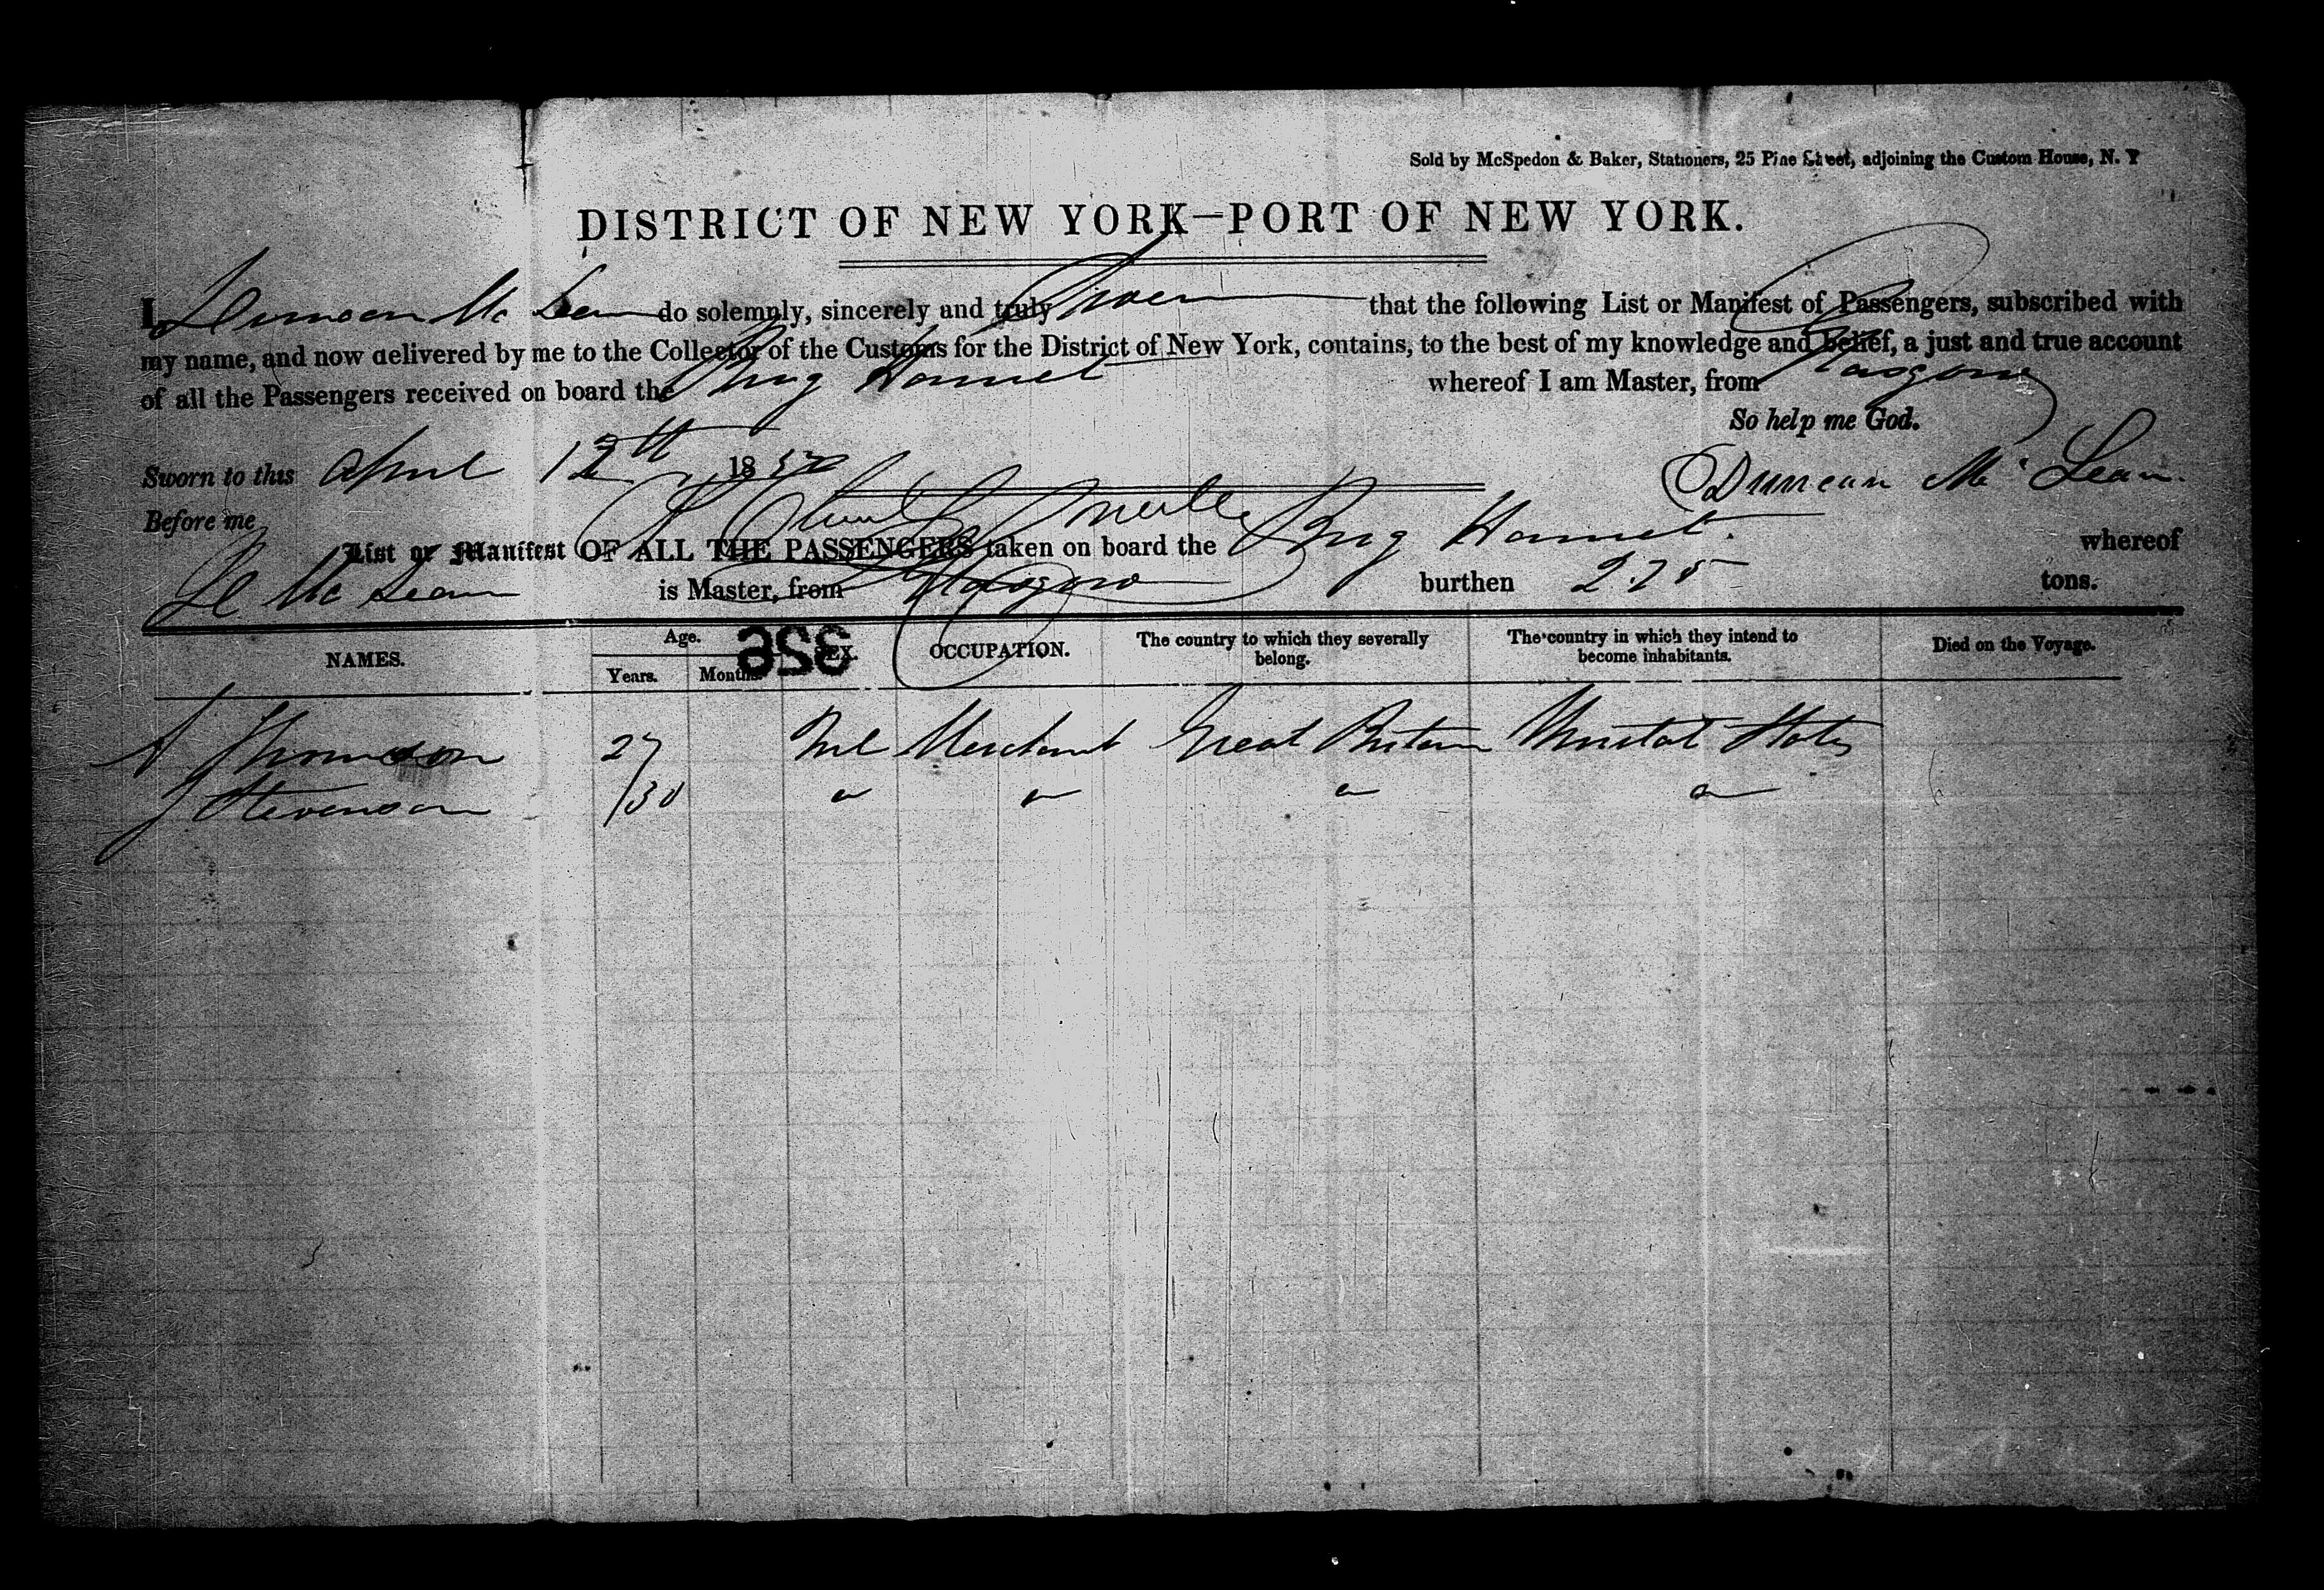 Sold by McSpedon & Baker, Stationers, 25 Pine Street, adjoining the Custom House, N. Y
DISTRICT OF NEW YORK—PORT OF NEW YORK.
I, Duncan Mc Lean do solemnly, sincerely and truly Swear that the following List or Manifest of Passengers, subscribed with
my name, and now delivered by me to the Collector of the Customs for the District of New York, contains, to the best of my knowledge and belief, a just and true account
of all the Passengers received on board the Brig whereof I am Master, from Glasgow
So help me God.
Sworn to this April 12th 1850 Duncan Mc Lean.
Before me
List or Manifest OF ALL THE PASSENGERS taken on board the Brig whereof
D Mc Lean is Master, from Glasgow burthen 275 tons.
NAMES. Age. Years. Months. SEX. OCCUPATION. The country to which they severally belong. The country in which they intend to become inhabitants. Died on the Voyage.
326
A Thomson 27 Mle Merchant Great Britain United States
J Stevenson 30 " " " "